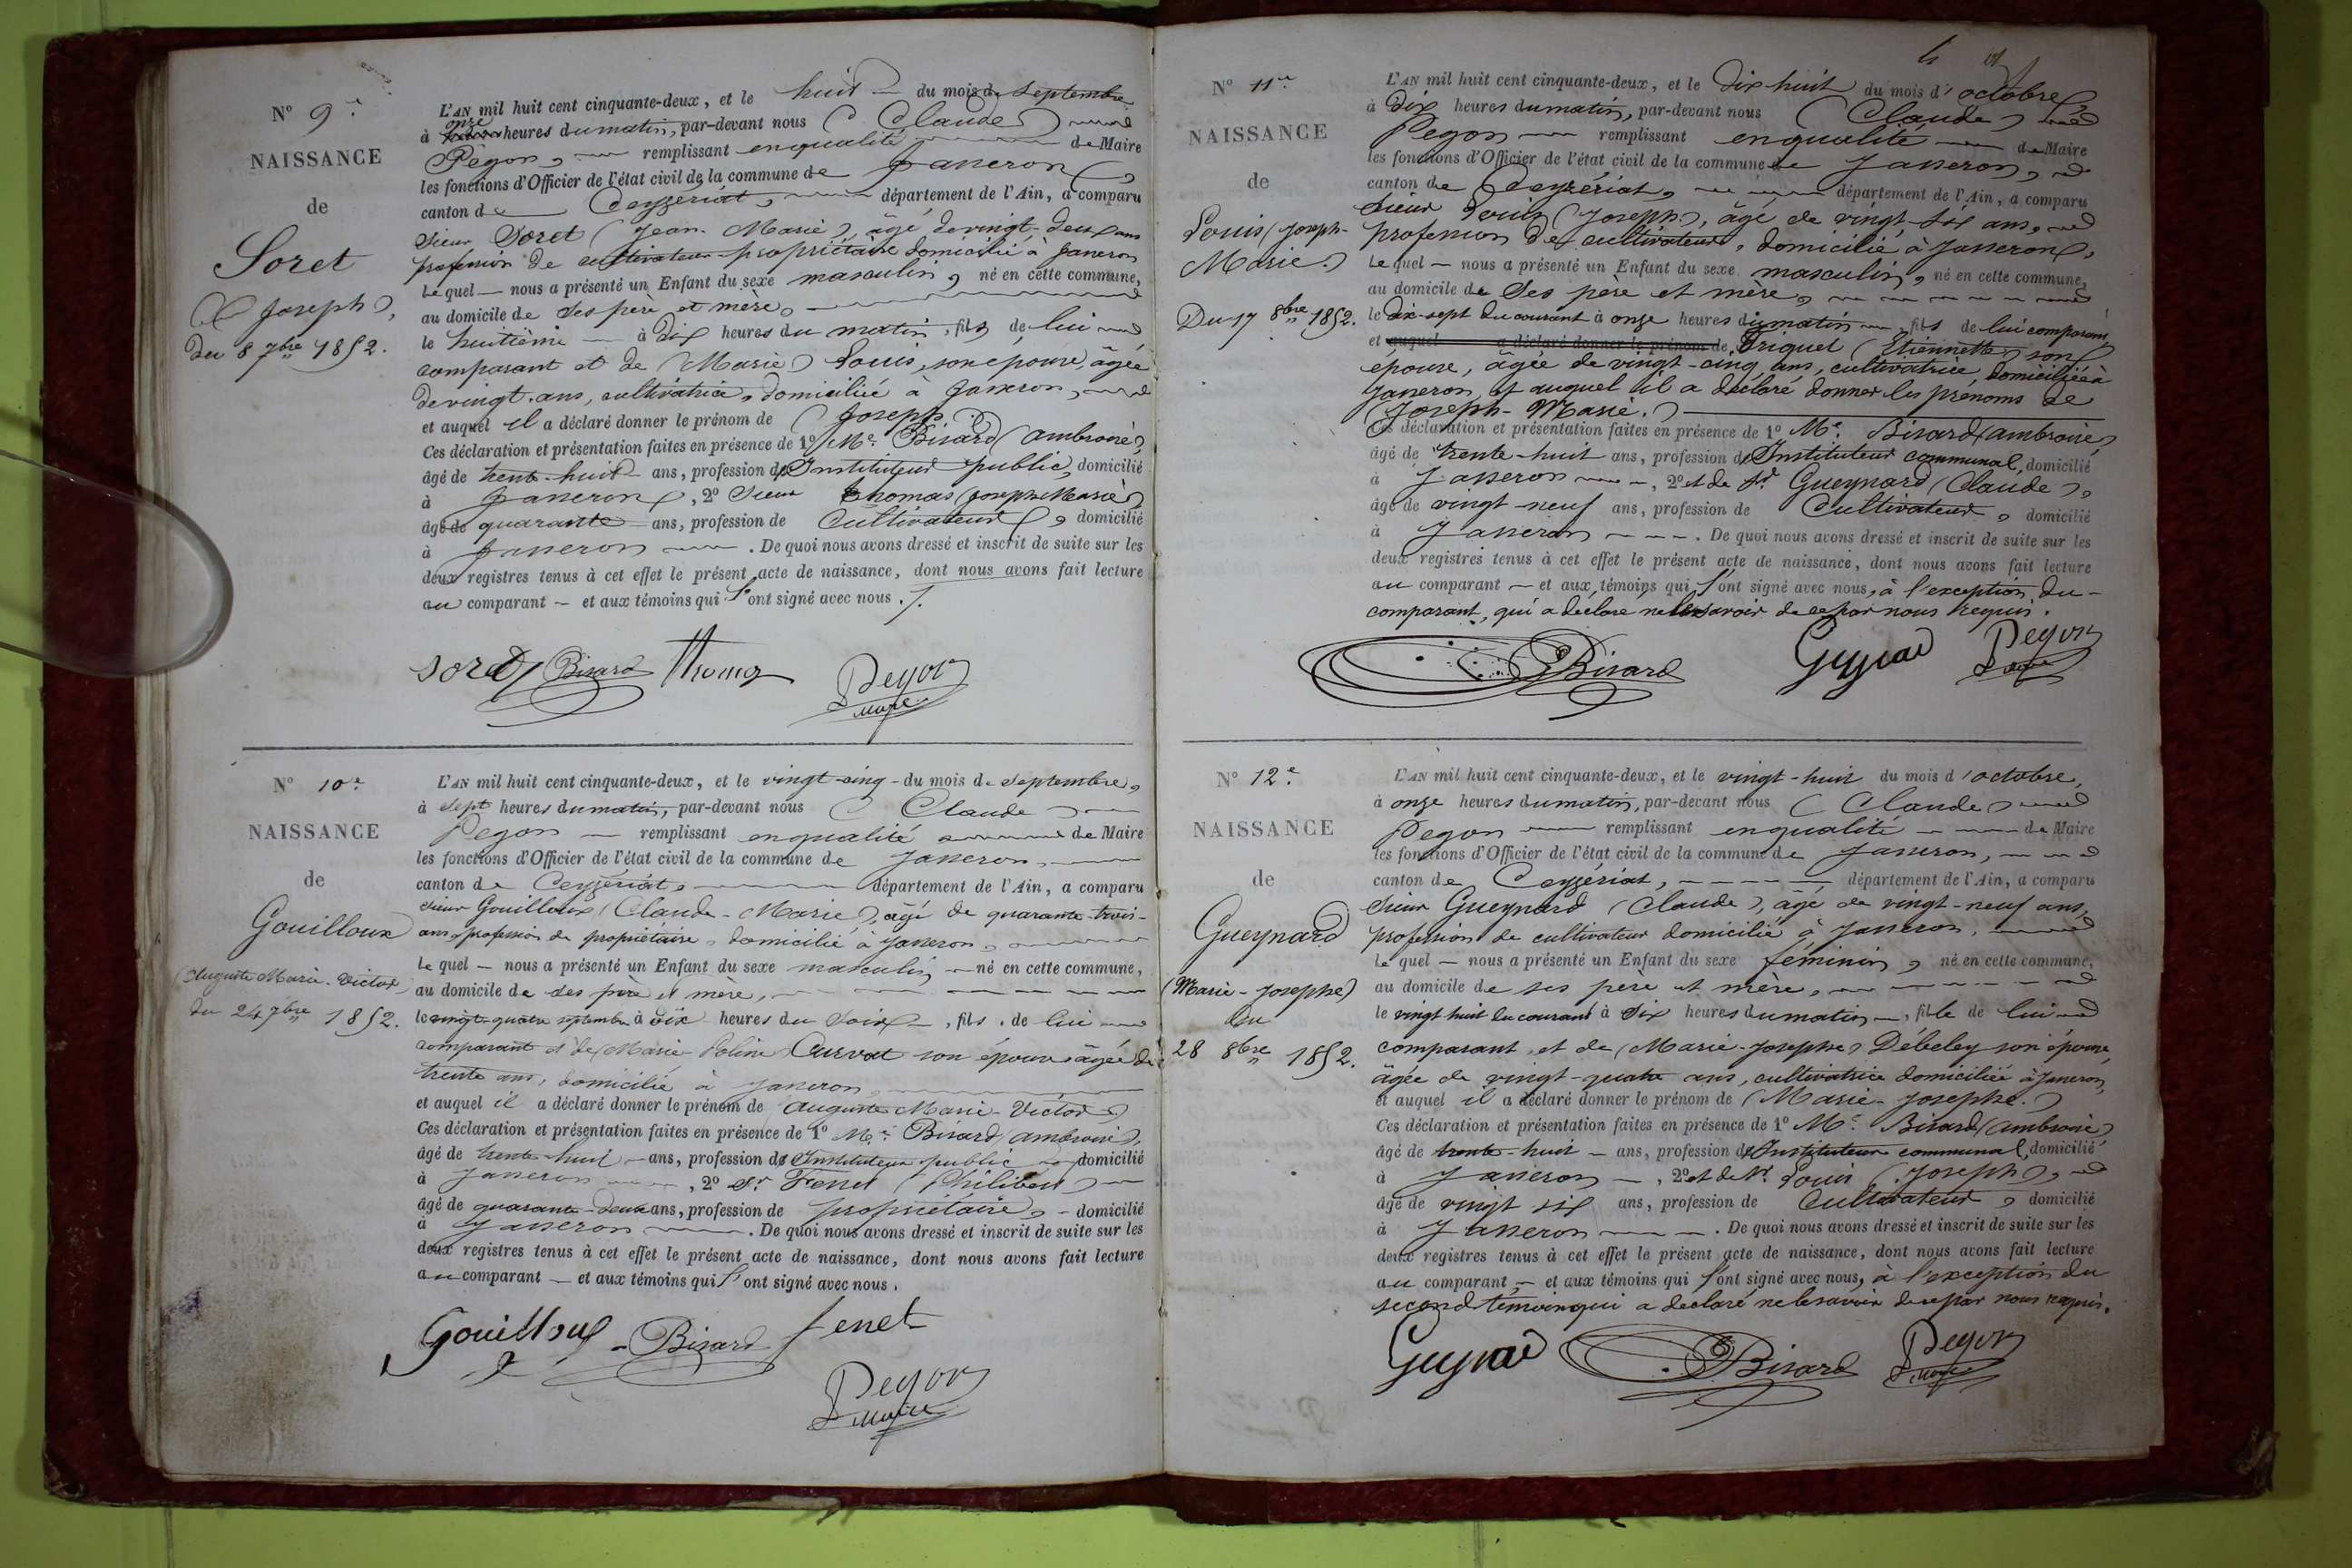 N° 9e
NAISSANCE
de
Soret
(Joseph),
du 8 7bre 1852.
L'AN mil huit cent cinquante-deux, et le huit du mois de septembre
à onze heures du matin, par-devant nous (Claude)
Pegon, remplissant en qualité de Maire
les fonctions d'Officier de l'état civil de la commune de Jasseron,
canton de Ceyzériat, département de l'Ain, a comparu
sieur Soret (Jean-Marie), âgé de vingt-deux ans
profession de cultivateur propriétaire domicilié à Jasseron
Lequel nous a présenté un Enfant du sexe masculin, né en cette commune,
au domicile de ses père et mère,
le huitième à dix heures du matin, fils de lui
comparant et de (Marie) Louis, son épouse, âgée
de vingt ans, cultivatrice, domiciliée à Jasseron,
et auquel il a déclaré donner le prénom de (Joseph.)
Ces déclaration et présentation faites en présence de 1° Mr. Bisard (ambroise)
âgé de trente-huit ans, profession d'Instituteur public, domicilié
à Jasseron, 2° Sieur Thomas (Joseph Marie)
âgé de quarante ans, profession de Cultivateur, domicilié
à Jasseron. De quoi nous avons dressé et inscrit de suite sur les
deux registres tenus à cet effet le présent acte de naissance, dont nous avons fait lecture
au comparant et aux témoins qui l'ont signé avec nous.
Soret Bisard Thomas Pegon
maire
N° 10e
NAISSANCE
de
Gouilloux
(Auguste Marie-Victor)
du 24 7bre 1852.
L'AN mil huit cent cinquante-deux, et le vingt-cinq du mois de septembre,
à sept heures du matin, par-devant nous (Claude)
Pegon remplissant en qualité de Maire
les fonctions d'Officier de l'état civil de la commune de Jasseron,
canton de Ceyzériat, département de l'Ain, a comparu
sieur Gouilloux (Claude-Marie), âgé de quarante-trois
ans, profession de propriétaire, domicilié à Jasseron,
Lequel nous a présenté un Enfant du sexe masculin né en cette commune,
au domicile de ses père et mère,
le vingt-quatre septembre à six heures du soir, fils de lui
comparant et de (Marie Poline) Curvat son épouse âgée de
trente ans, domicilié à Jasseron,
et auquel il a déclaré donner le prénom de Auguste Marie-Victor)
Ces déclaration et présentation faites en présence de 1° Mr. Bisard (ambroise),
âgé de trente-huit ans, profession d'Instituteur public domicilié
à Jasseron, 2° Sr Fenet (Philibert)
âgé de quarante-deux ans, profession de propriétaire, domicilié
à Jasseron. De quoi nous avons dressé et inscrit de suite sur les
deux registres tenus à cet effet le présent acte de naissance, dont nous avons fait lecture
au comparant et aux témoins qui l'ont signé avec nous.
Gouilloux Bisard fenet
Pegon
maire
N° 11e
NAISSANCE
de
Louis (Joseph-
Marie)
Du 17 8bre 1852.
L'AN mil huit cent cinquante-deux, et le Dix-huit du mois d'octobre,
à Dix heures du matin, par-devant nous (Claude)
Pegon remplissant en qualité de Maire
les fonctions d'Officier de l'état civil de la commune de Jasseron,
canton de Ceyzériat, département de l'Ain, a comparu
sieur Louis (Joseph), âgé de vingt-six ans,
profession de cultivateur, domicilié à Jasseron,
Lequel nous a présenté un Enfant du sexe masculin, né en cette commune,
au domicile de ses père et mère,
le dix-sept du courant à onze heures du matin, fils de lui comparant,
et auquel a déclaré donner le prénom de Friquet (Etiennette) son
épouse, âgée de vingt-cinq ans, cultivatrice domiciliée à
Jasseron, et auquel il a déclaré donner les prénoms de
(Joseph-Marie.)
Ces déclaration et présentation faites en présence de 1° Mr. Bisard (ambroise)
âgé de trente-huit ans, profession d'Instituteur communal, domicilié
à Jasseron, 2° et de Sr Gueynard (Claude),
âgé de vingt-neuf ans, profession de Cultivateur, domicilié
à Jasseron. De quoi nous avons dressé et inscrit de suite sur les
deux registres tenus à cet effet le présent acte de naissance, dont nous avons fait lecture
au comparant et aux témoins qui l'ont signé avec nous, à l'exception du
comparant, qui a déclaré ne le savoir de ce par nous requis.
Bisard Gueynard Pegon
maire
N° 12e
NAISSANCE
de
Gueynard
(Marie-Josephe)
du
28 8bre 1852.
L'AN mil huit cent cinquante-deux, et le vingt-huit du mois d'octobre,
à onze heures du matin, par-devant nous (Claude)
Pegon remplissant en qualité de Maire
les fonctions d'Officier de l'état civil de la commune de Jasseron,
canton de Ceyzériat, département de l'Ain, a comparu
sieur Gueynard (Claude), âgé de vingt-neuf ans,
profession de cultivateur domicilié à Jasseron,
Lequel nous a présenté un Enfant du sexe féminin, né en cette commune,
au domicile de ses père et mère,
le vingt huit du courant à six heures du matin, fille de lui
comparant, et de (Marie-Josephe) Débeley son épouse,
âgée de vingt-quatre ans, cultivatrice domiciliée à Jasseron,
et auquel il a déclaré donner le prénom de (Marie-Josephe.)
Ces déclaration et présentation faites en présence de 1° Mr. Bisard (ambroise)
âgé de trente-huit ans, profession d'Instituteur communal, domicilié
à Jasseron, 2° et de Sr. Louis (Joseph),
âgé de vingt six ans, profession de Cultivateur, domicilié
à Jasseron. De quoi nous avons dressé et inscrit de suite sur les
deux registres tenus à cet effet le présent acte de naissance, dont nous avons fait lecture
au comparant et aux témoins qui l'ont signé avec nous, à l'exception du
second témoin qui a déclaré ne le savoir de ce par nous requis.
Gueynard Bisard Pegon
maire